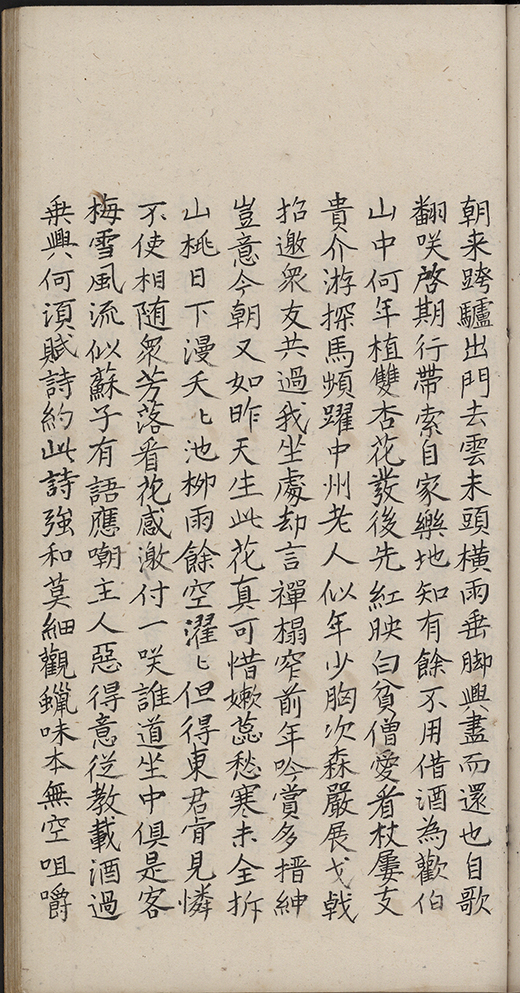 朝来跨驢出門去雲未頭橫雨垂脚興盡而還也自歌
翻咲啓期行帶索自家樂地知有餘不用借酒為歡伯
山中何年植雙杏花發後先紅映白貧僧愛看杖屨支
貴介游探馬頻躍中州老人似年少胸次森嚴展戈戟
招邀衆友共過我坐處却言禪榻窄前年吟賞多搢紳
豈意今朝又如昨天生此花真可惜嫰蕊愁寒未全拆
山桃日下漫夭〻池栁雨餘空濯〻但得東君肯見憐
不使相随衆芳落看花感激付一咲誰道坐中俱是客
梅雪風流似蘇子有語應嘲主人惡得意従教載酒過
乗興何湏賦詩約此詩強和莫細觀蠟味本無空咀嚼